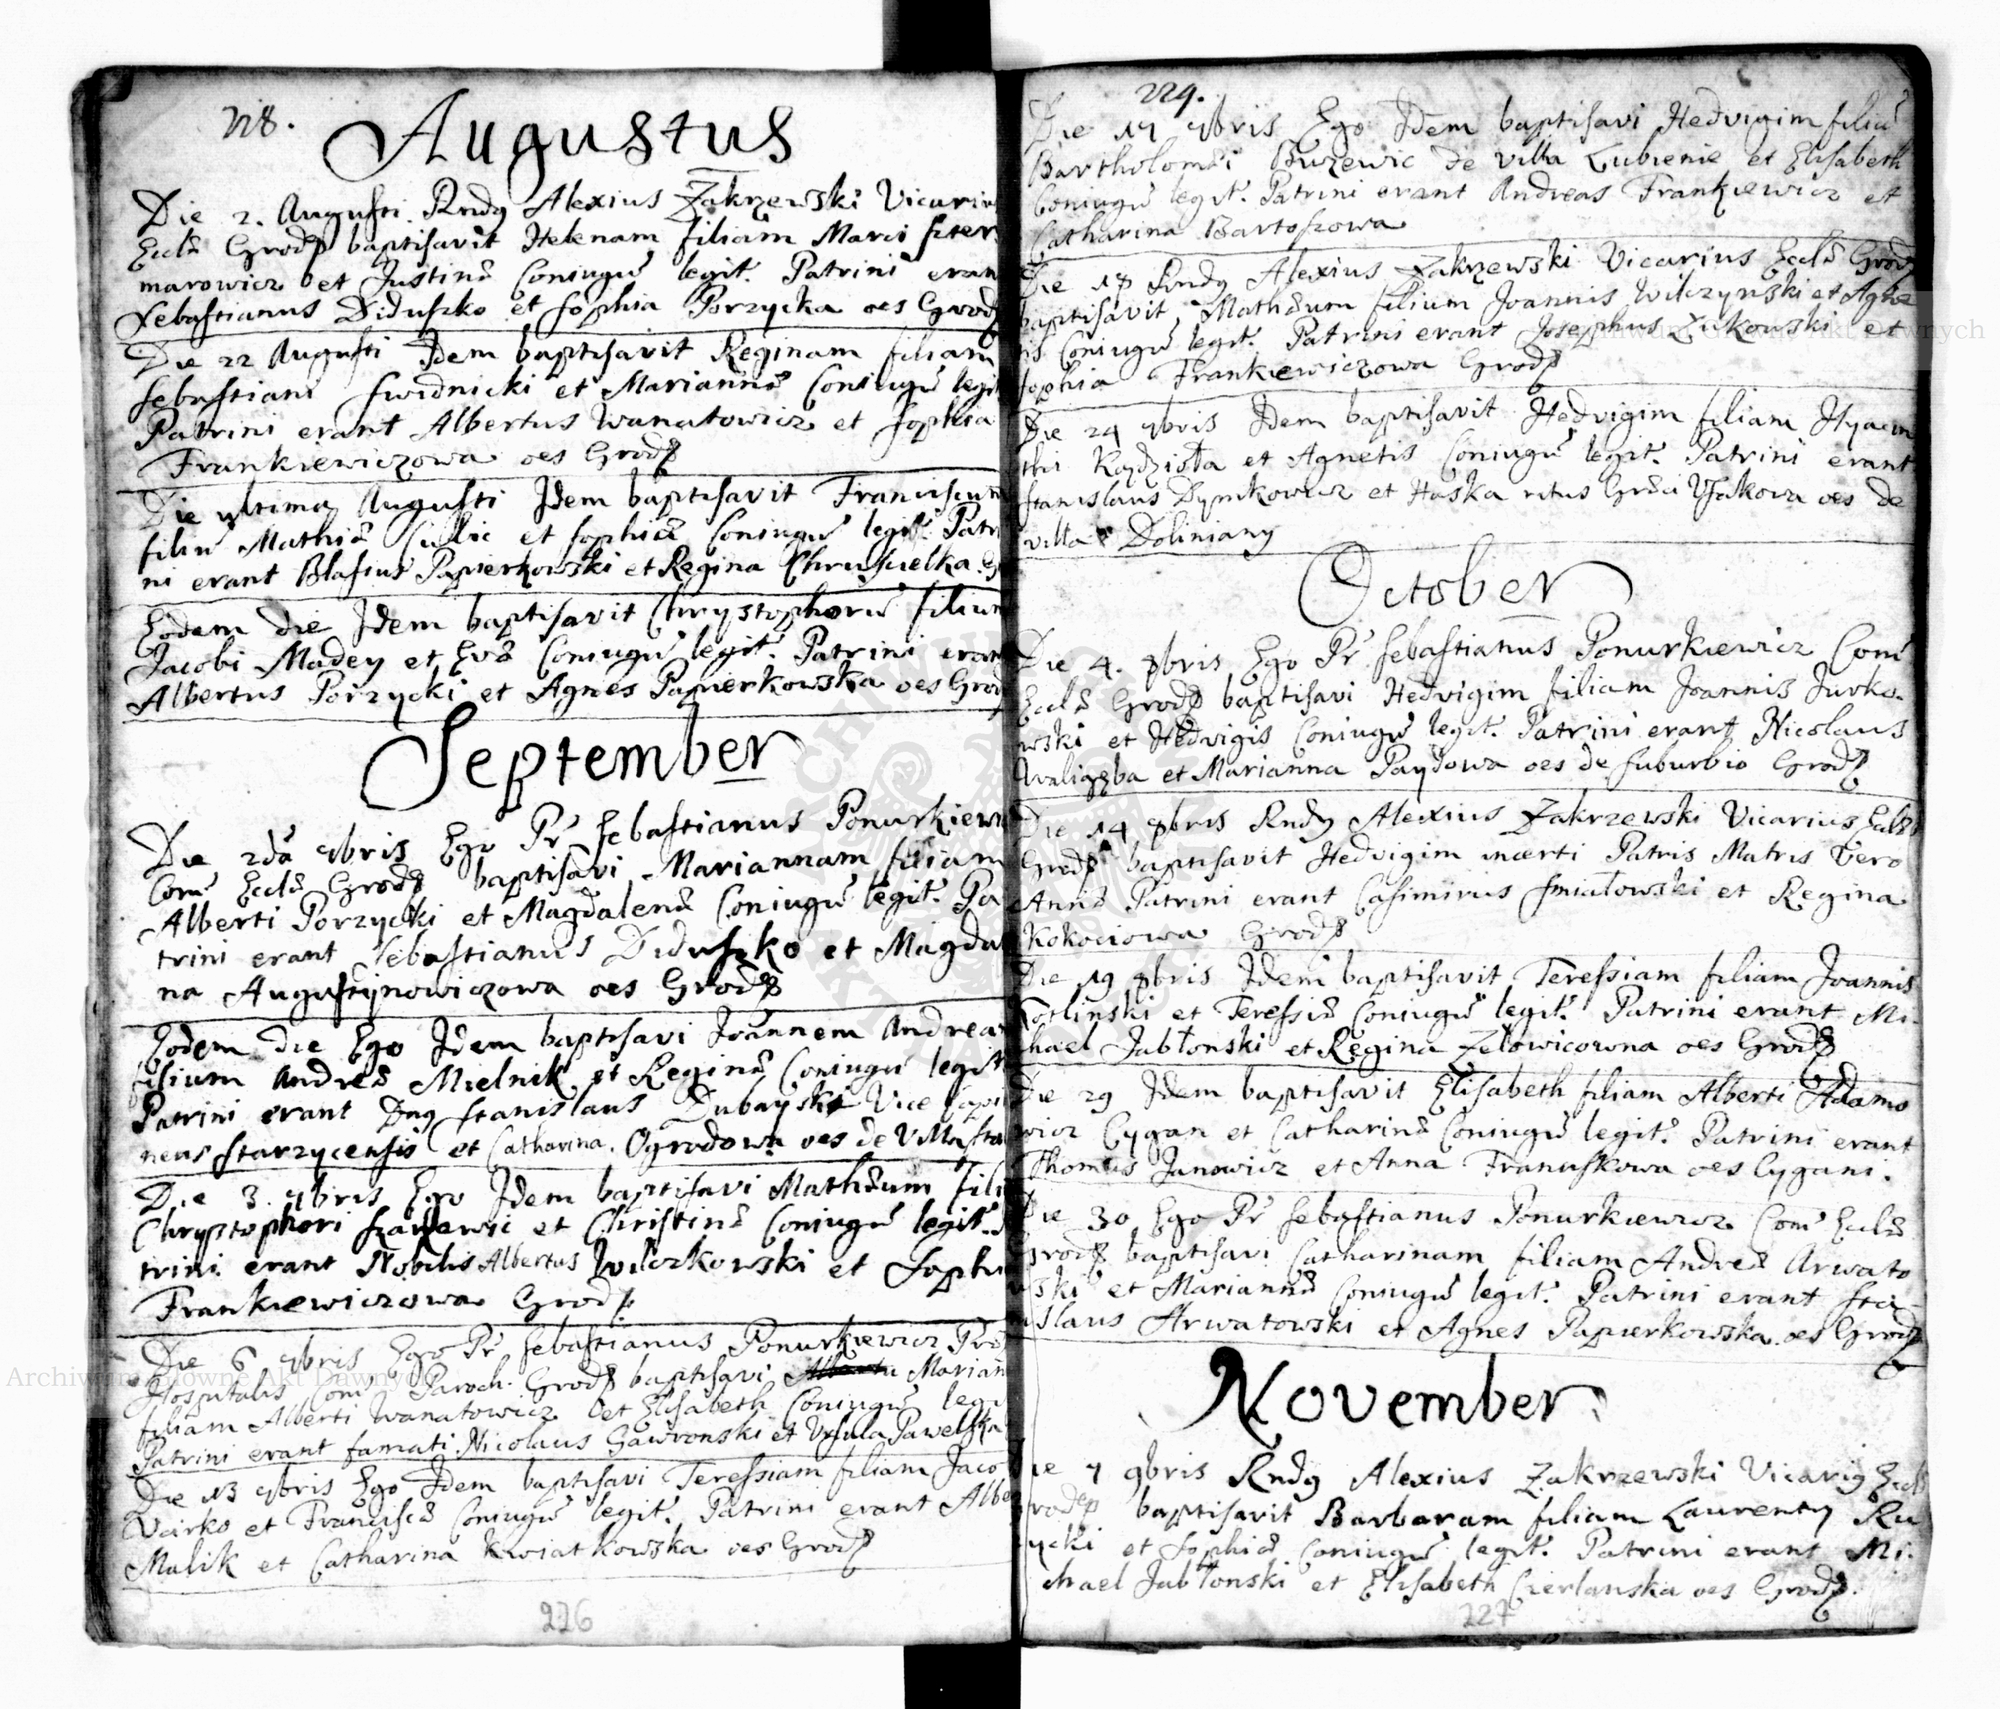 228.
Augustus
Die 2. Augusti Rndq Alexius Zakrzewski Vicarius
Eccl. Grod. baptisavit Helenam filiam Marci
marowicz et Justinæ Coniugũ legit. Patrini eran
Sebastianus Diduszko et Sophia Porzycka oes Grod.
Die 22 Augusti Idem baptisavit Reginam filiam
Sebastiani Swidnicki et Mariannæ Coniugũ legit
Patrini erant Albertus Wanatowicz et Sophia
Frankiewiczowa oes Grod.
Die ultima Augusti Idem baptisavit Franciscum
filiũ Mathiæ Culic et Sophiæ Coniugũ legit. Patri
ni erant Blasius Papierkowski et Regina Chrusscielka
Eodem die Idem baptisavit Chrystophorũ filium
Jacobi Madey et Evæ Coniugũ legit. Patrini erant
Albertus Porzycki et Agnes Papierkowska oes Grod
September
Die 2dâ 7bris Ego Pr Sebastianus Ponurkiewi
Com Eccl. Grod. baptisavi Mariannam filiam
Alberti Porzycki et Magdalenæ Coniugũ legit. Pa
trini erant Sebastianus Diduszko et Magdale
na Augustynowiczowa oes Grod.
Eodem die Ego Idem baptisavi Joannem Andream
filium Andreæ Mielnik et Reginæ Coniugũ legit
Patrini erant Dnq Stanislaus Dubayski Vice
neus Starzycensis et Catharina Ogrodowa oes de Villa Sta
Die 3. 7bris Ego Idem baptisavi Mathæum filiũ
Chryptophori et Christinæ Coniugũ legit.
trini erant Nobilis Albertus Wilczkowski et Sophi
Frankiewiczowa Grod.
Die 6 7bris Ego Pr Sebastianus Ponurkiewicz
Hospitalis Com Paroch. Grod. baptisavi Mariann
filiam Alberti Wanatowicz et Elisabeth Coniugũ legi
Patrini erant famati Nicolaus Gawronski et Ursula Pawelska
Die 13 7bris Ego Idem baptisavi Teressiam filiam Jaco
Wirko et Franciscæ Coniugũ legit. Patrini erant Alber
Malik et Catharina Kwiatkowska oes Grod.
226
229.
Die 17 7bris Ego Idem baptisavi Hedvigim filiã
Bartholomæi Buzewic de villa Lubienie et Elisabeth
Coniugũ legit. Patrini erant Andreas Frankiewicz et
Catharina Bartoszowa
Die 18 Rndq Alexius Zakrzewski Vicarius Eccl. Grod.
baptisavit Mathæum filium Joannis Wilczynski et Agne
tis Coniugũ legit. Patrini erant Josephus Zukowski et
Sophia Frankiewiczowa Grod.
Die 24 7bris Idem baptisavit Hedvigim filiam Hyacin
thi et Agnetis Coniugũ legit. Patrini erant
Stanislaus Dymkowicz et Haska ritus Græci oes de
villa Doliniany
October
Die 4. 8bris Ego Pr Sebastianus Ponurkiewicz Com
Eccl. Grod. baptisavi Hedvigim filiam Joannis Jurko
wski et Hedvigis Coniugũ legit. Patrini erant Nicolaus
Waligęba et Marianna Paydowa oes de suburbio Grod.
Die 14 8bris Rndq Alexius Zakrzewski Vicarius Eccl.
Grod. baptisavit Hedvigim incerti Patris Matris vero
Annæ Patrini erant Casimirus Smiałowski et Regina
Kokociowa Grod.
Die 19 8bris Idem baptisavit Teressiam filiam Joannis
Kotlinski et Teressiæ Coniugũ legit. Patrini erant Mi
chael Jabłonski et Regina Zelowicowna oes Grod.
Die 29 Idem baptisavit Elisabeth filiam Alberti Adamo
wicz Cygan et Catharinæ Coniugũ legit. Patrini erant
Thomas Janowicz et Anna Franuskowa oes Cygani.
Die 30 Ego Pr Sebastianus Ponurkiewicz Com Eccl.
Grod. baptisavi Catharinam filiam Andreæ Arwato
wski et Mariannæ Coniugũ legit. Patrini erant Sta
nislaus Arwatowski et Agnes Papierkowska oes Grod.
November
Die 7 9bris Rndq Alexius Zakrzewski Vicariq Eccl.
Grod. baptisavit Barbaram filiam Laurenty Ru
ycki et Sophiæ Coniugũ legit. Patrini erant Mi
chael Jabłonski et Elisabeth Czerlanska oes Grod.
227
Archiwum Główne Akt Dawnych